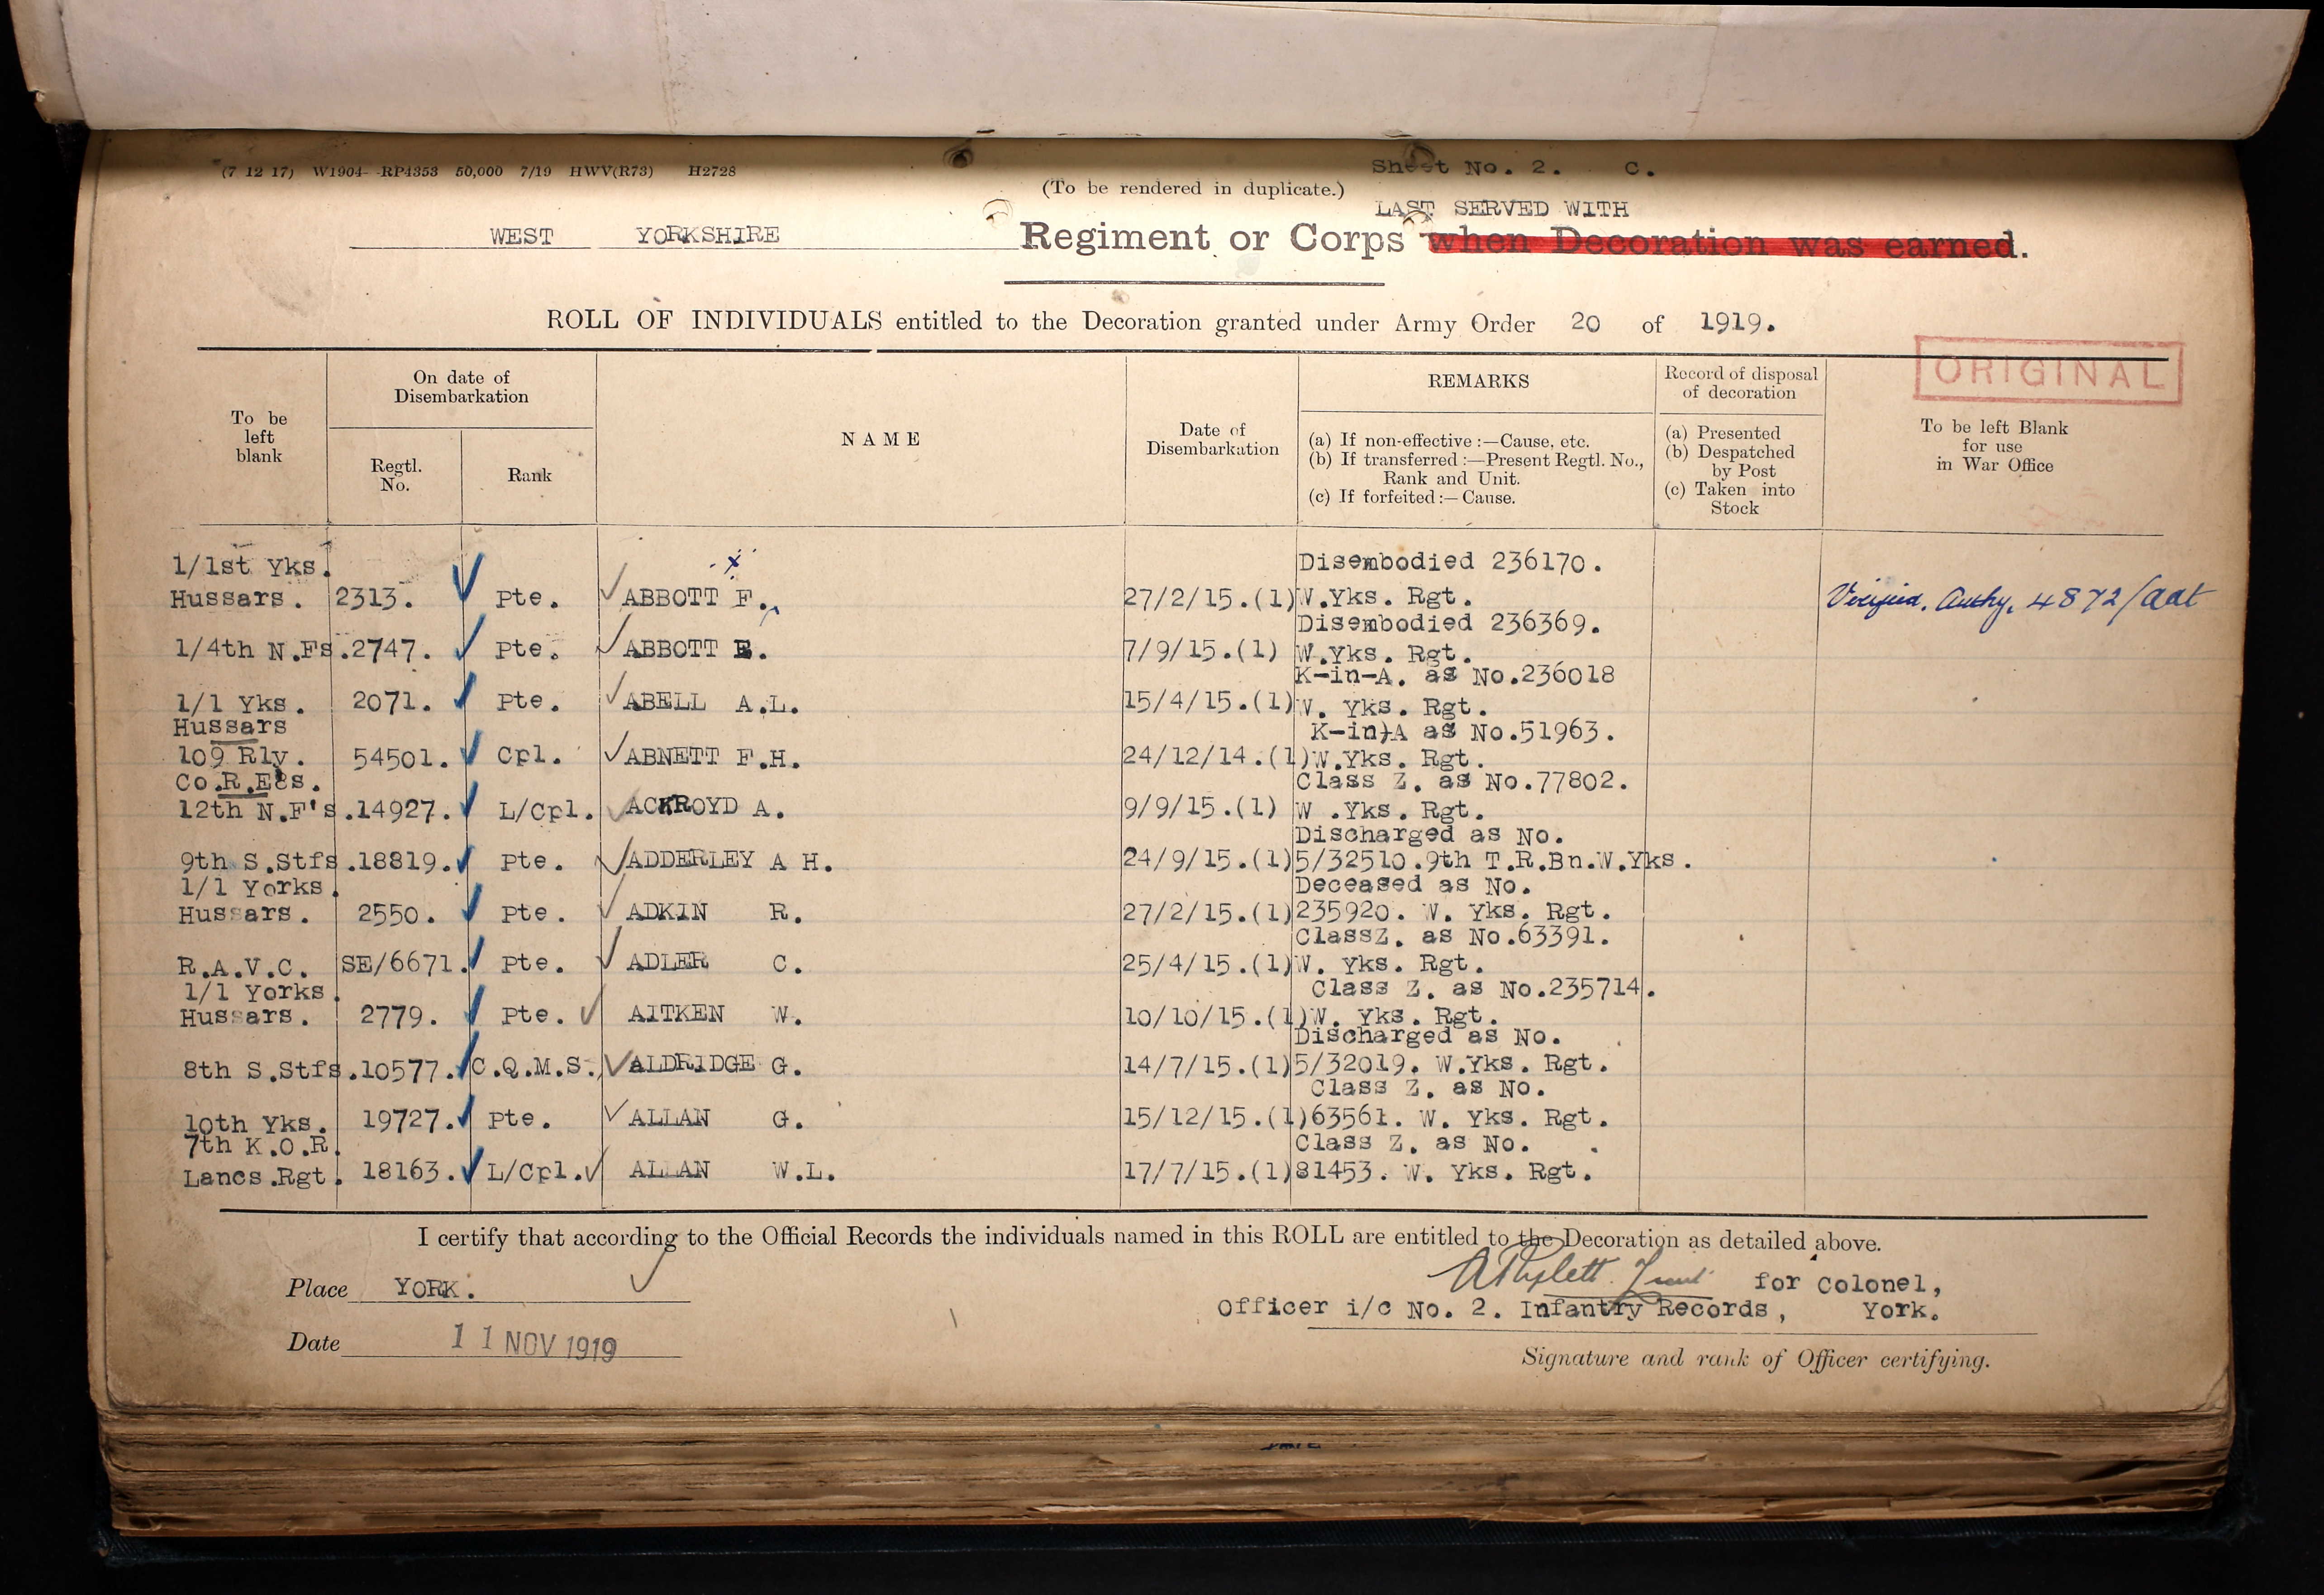 (7 12 17) W1904- -RP4353 50,000 7/19 HWV(R73) H2728
Sheet No. 2. C.
(To be rendered in duplicate.)
LAST SERVED WITH
WEST YORKSHIRE Regiment or Corps when Decoration was earned.
ROLL OF INDIVIDUALS entitled to the Decoration granted under Army Order 20 of 1919.
ORIGINAL
To be left blank
On date of Disembarkation
Regtl. No.
Rank
NAME
Date of Disembarkation
REMARKS
(a) If non-effective :—Cause, etc.
(b) If transferred :—Present Regtl. No., Rank and Unit.
(c) If forfeited :— Cause.
Record of disposal of decoration
(a) Presented
(b) Despatched by Post
(c) Taken into Stock
To be left Blank for use in War Office
1/1st Yks. Disembodied 236170.
Hussars. 2313. Pte. ABBOTT F. 27/2/15.(1) W.Yks. Rgt. Verified. Authy. 4872/
Disembodied 236369.
1/4th N.Fs. 2747. Pte. ABBOTT E. 7/9/15.(1) W.Yks. Rgt.
K-in-A. as No.236018
1/1 Yks. 2071. Pte. ABELL A.L. 15/4/15.(1) W. Yks. Rgt.
Hussars K-in-A as No.51963.
109 Rly. 54501. Cpl. ABNETT F.H. 24/12/14.(1) W.Yks. Rgt.
Co.R.E's. Class Z. as No.77802.
12th N.F's. 14927. L/Cpl. ACKROYD A. 9/9/15.(1) W .Yks. Rgt.
Discharged as No.
9th S.Stfs. 18819. Pte. ADDERLEY A H. 24/9/15.(1) 5/32510.9th T.R.Bn.W.Yks.
1/1 Yorks. Deceased as No.
Hussars. 2550. Pte. ADKIN R. 27/2/15.(1) 235920. W. Yks. Rgt.
ClassZ. as No.63391.
R.A.V.C. SE/6671. Pte. ADLER C. 25/4/15.(1) W. Yks. Rgt.
1/1 Yorks. Class Z. as No.235714.
Hussars. 2779. Pte. AITKEN W. 10/10/15.(1) W. Yks. Rgt.
Discharged as No.
8th S.Stfs. 10577. C.Q.M.S. ALDRIDGE G. 14/7/15.(1) 5/32019. W.Yks. Rgt.
Class Z. as No.
10th Yks. 19727. Pte. ALLAN G. 15/12/15.(1) 63561. W. Yks. Rgt.
7th K.O.R. Class Z. as No.
Lancs.Rgt. 18163. L/Cpl. ALLAN W.L. 17/7/15.(1) 81453. W. Yks. Rgt.
I certify that according to the Official Records the individuals named in this ROLL are entitled to the Decoration as detailed above.
Place YORK.
for Colonel,
Officer i/c No. 2. Infantry Records, York.
Date 11 NOV 1919
Signature and rank of Officer certifying.